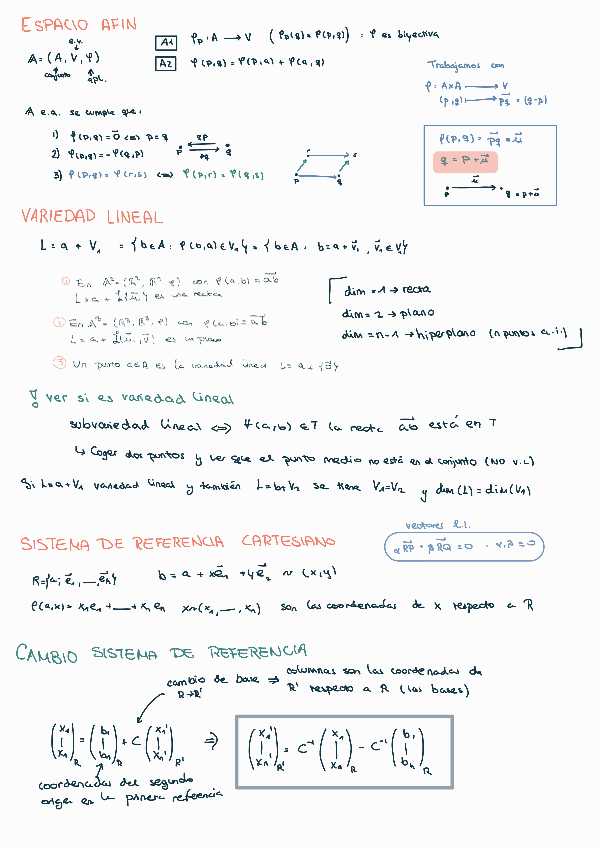 ESPACIO AFIN
e.v.
A = (A, V, φ)
conjunto apl.
A1 φp : A → V (φp(q) = φ(p,q)) = φ es biyectiva
A2 φ(p,q) = φ(p,a) + φ(a,q)
Trabajamos con
φ : A×A → V
(p,q) → pq = (q-p)
A e.a. se cumple que:
1) φ(p,q) = 0 ⟺ p=q
2) φ(p,q) = -φ(q,p)
3) φ(p,q) = φ(r,s) ⟺ φ(p,r) = φ(q,s)
qp
p q
pq
r s
p q
φ(p,q) = pq = u
q = p + u
u
p q = p+u
VARIEDAD LINEAL
L = a + V₁ = {b∈A: φ(b,a)∈V₁} = {b∈A: b = a+v₁, v₁∈V₁}
① En A² = (R², R², φ) con φ(a,b) = ab
L = a + L{u} es una recta
② En A³ = (R³, R³, φ) con φ(a,b) = ab
L = a + L(u, v) es un plano
③ Un punto a∈A es la variedad lineal L = a + {0}
dim = 1 → recta
dim = 2 → plano
dim = n-1 → hiperplano (n puntos a.i.)
! ver si es variedad lineal
subvariedad lineal ⟺ ∀(a,b) ∈ T la recta ab está en T
↳ Coger dos puntos y ver que el punto medio no está en el conjunto (NO V.L)
Si L=a+V₁ variedad lineal y también L = b+V₂ se tiene V₁=V₂ y dim(L) = dim(V₁)
vectores l.i.
αRP + βRQ = 0 , α,β = 0
SISTEMA DE REFERENCIA CARTESIANO
R = {a; e₁, __, eₙ} b = a + xe₁ + ye₂ ~ (x,y)
φ(a,x) = x₁e₁ + __ + xₙeₙ x~(x₁, __, xₙ) son las coordenadas de x respecto a R
CAMBIO SISTEMA DE REFERENCIA
cambio de base ⇒ columnas son las coordenadas de
R→R' R' respecto a R (las bases)
(x₁ | xₙ)R = (b₁ | bₙ)R + C (x₁' | xₙ')R' ⇒ (x₁' | xₙ')R' = C⁻¹ (x₁ | xₙ)R - C⁻¹ (b₁ | bₙ)R
coordenadas del segundo
origen en la primera referencia